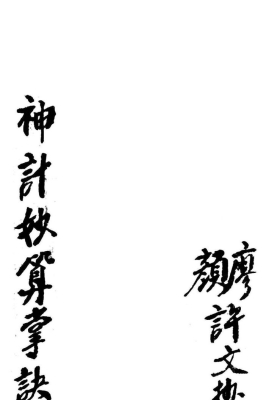 廖顏許文
神計妙算掌訣